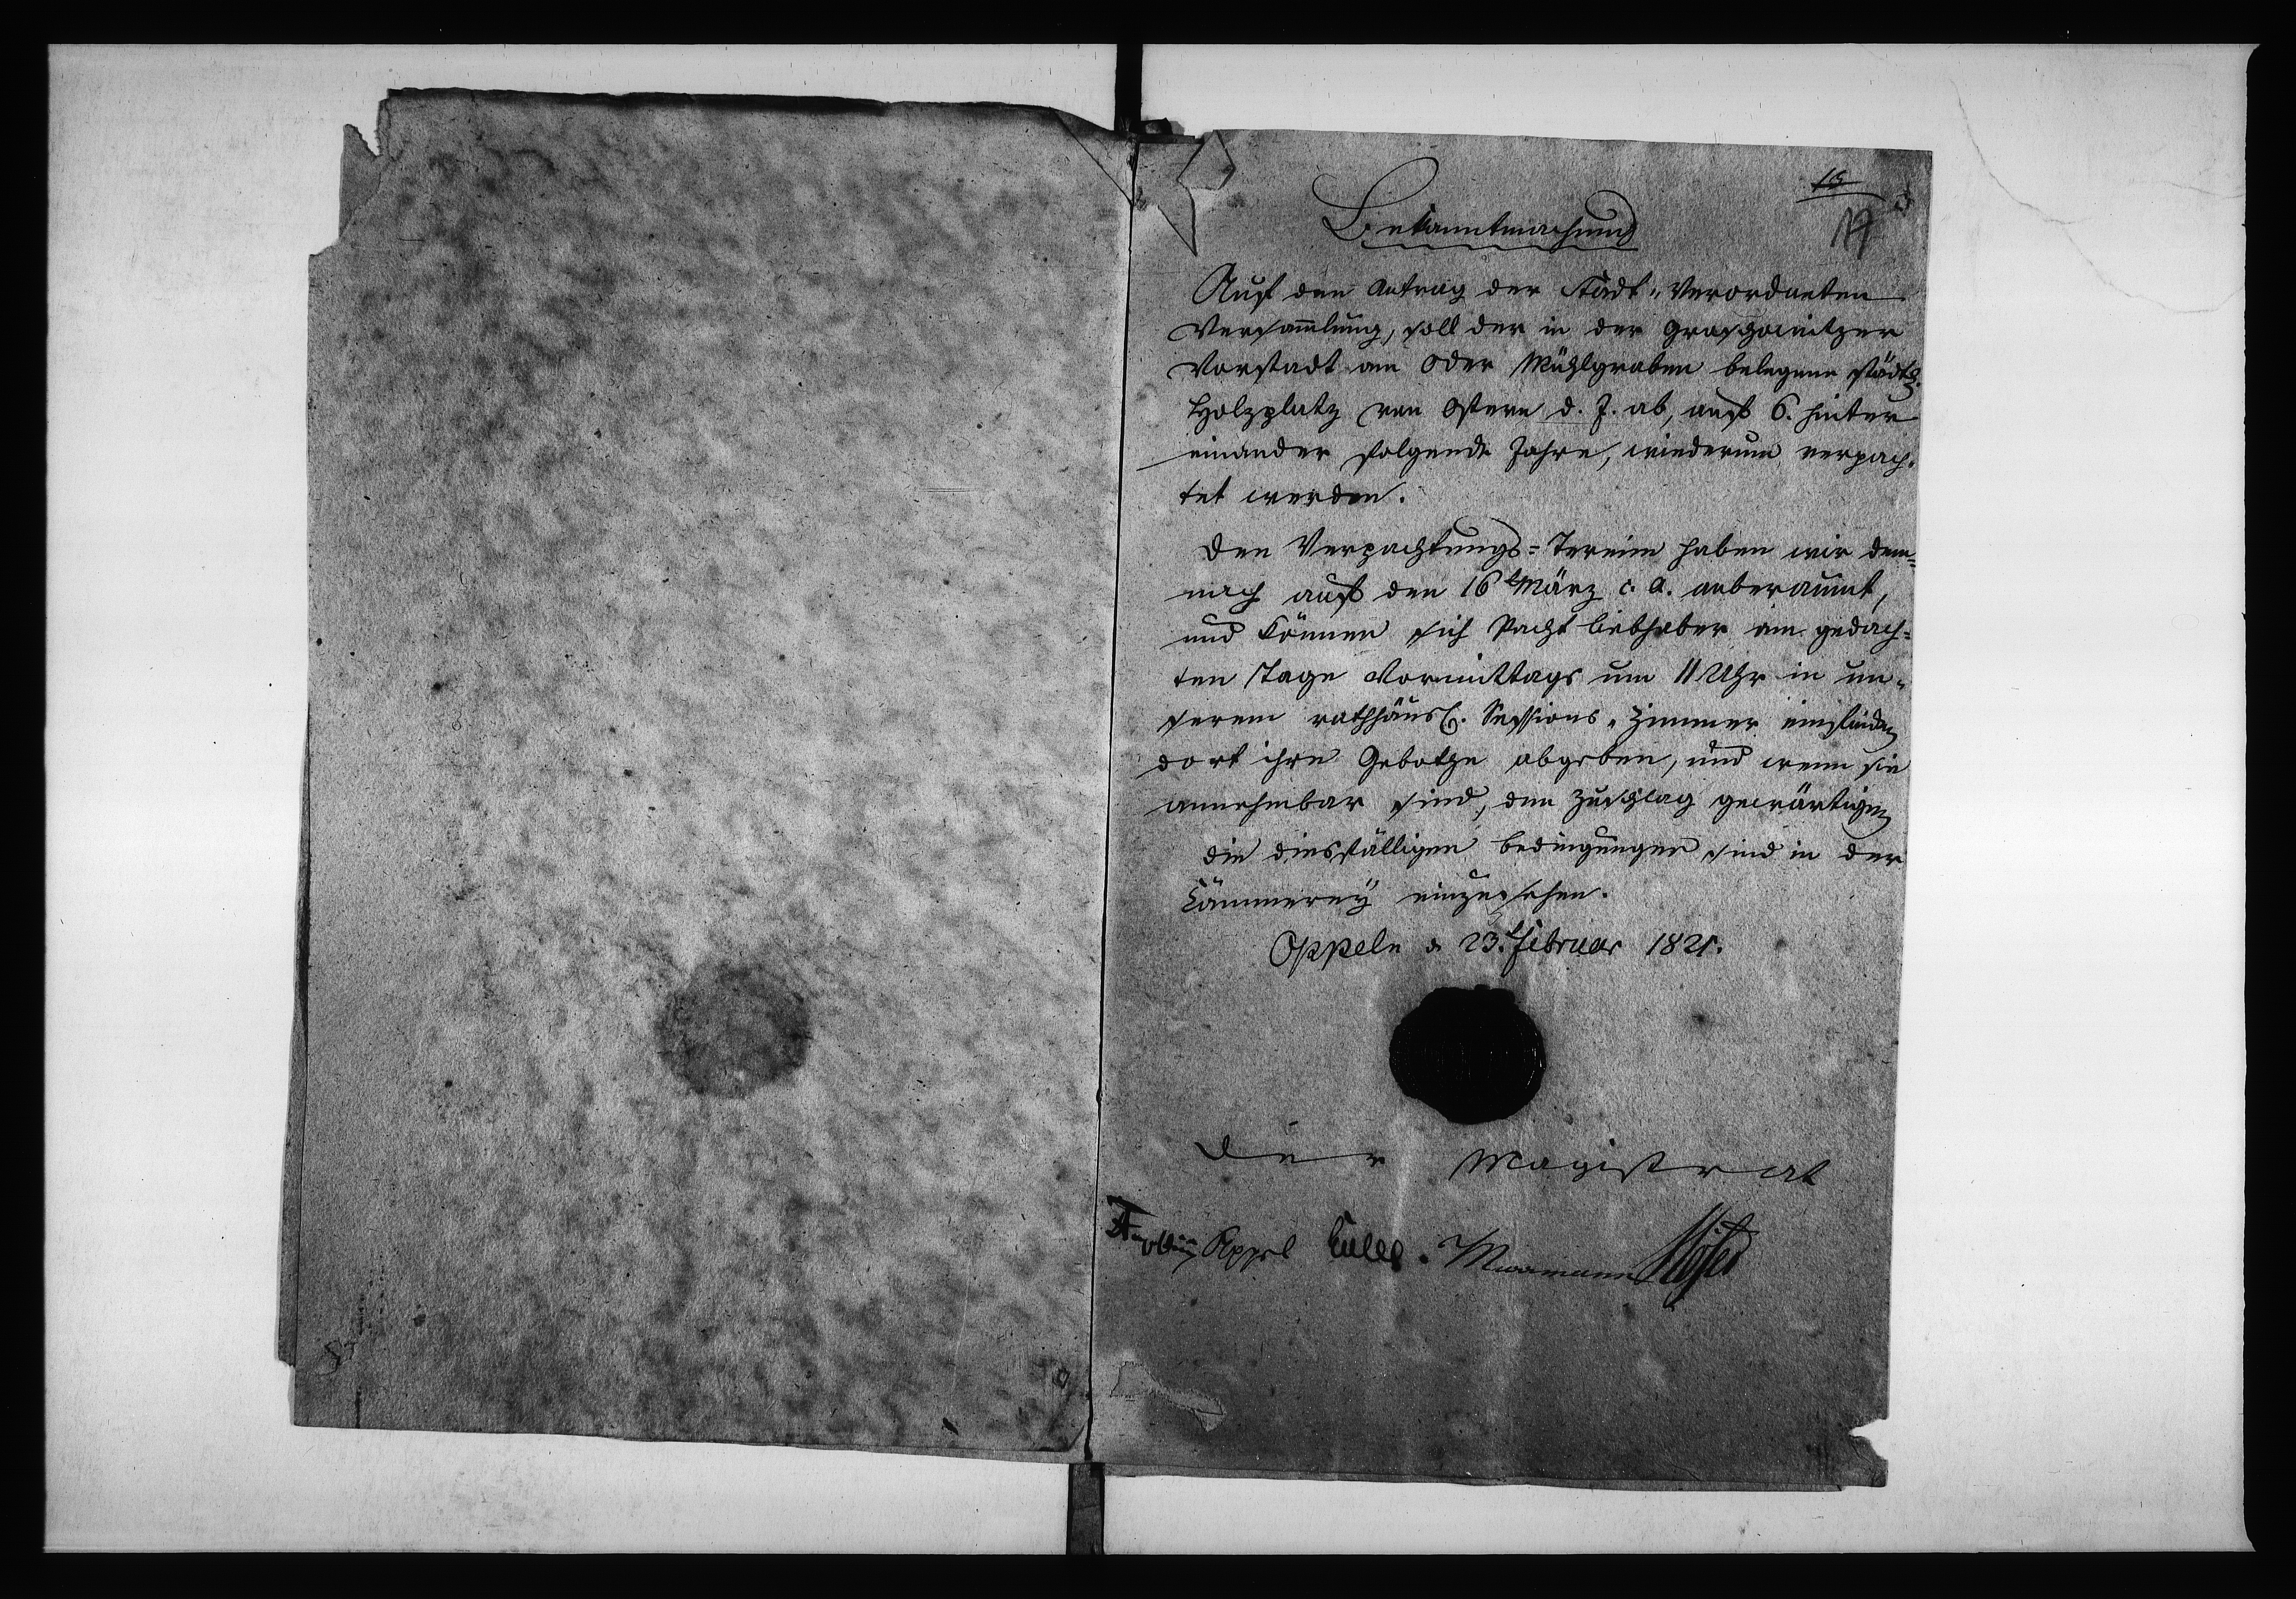 19
Bekanntmachung
Auf den Antrag der Stadt-Verordneten
Versam̄lung, soll der in der Groschowitzer
Vorstadt am Oder Mühlgraben belegene städt.
Holzplatz von Ostern d. J. ab, auf 6. hinter
einander folgende Jahre, wiederum verpach-
tet werden.
Den Verpachtungs=Termin haben wir dem=
nach auf den 16t März c. a. anberaumt,
und können sich Pachtliebhaber am gedach=
ten Tage Vormittags um 11 Uhr in un-
serem rathhäusl. Sessions-Zimmer einfinden
dort ihre Gebothe abgeben, und wenn sie
annehmbar sind, den Zuschlag gewärtigen
die diesfälligen Bedingungen sind in der
Cämmerey einzusehen.
Oppeln d. 23t Februar 1821.
Der Magistrat